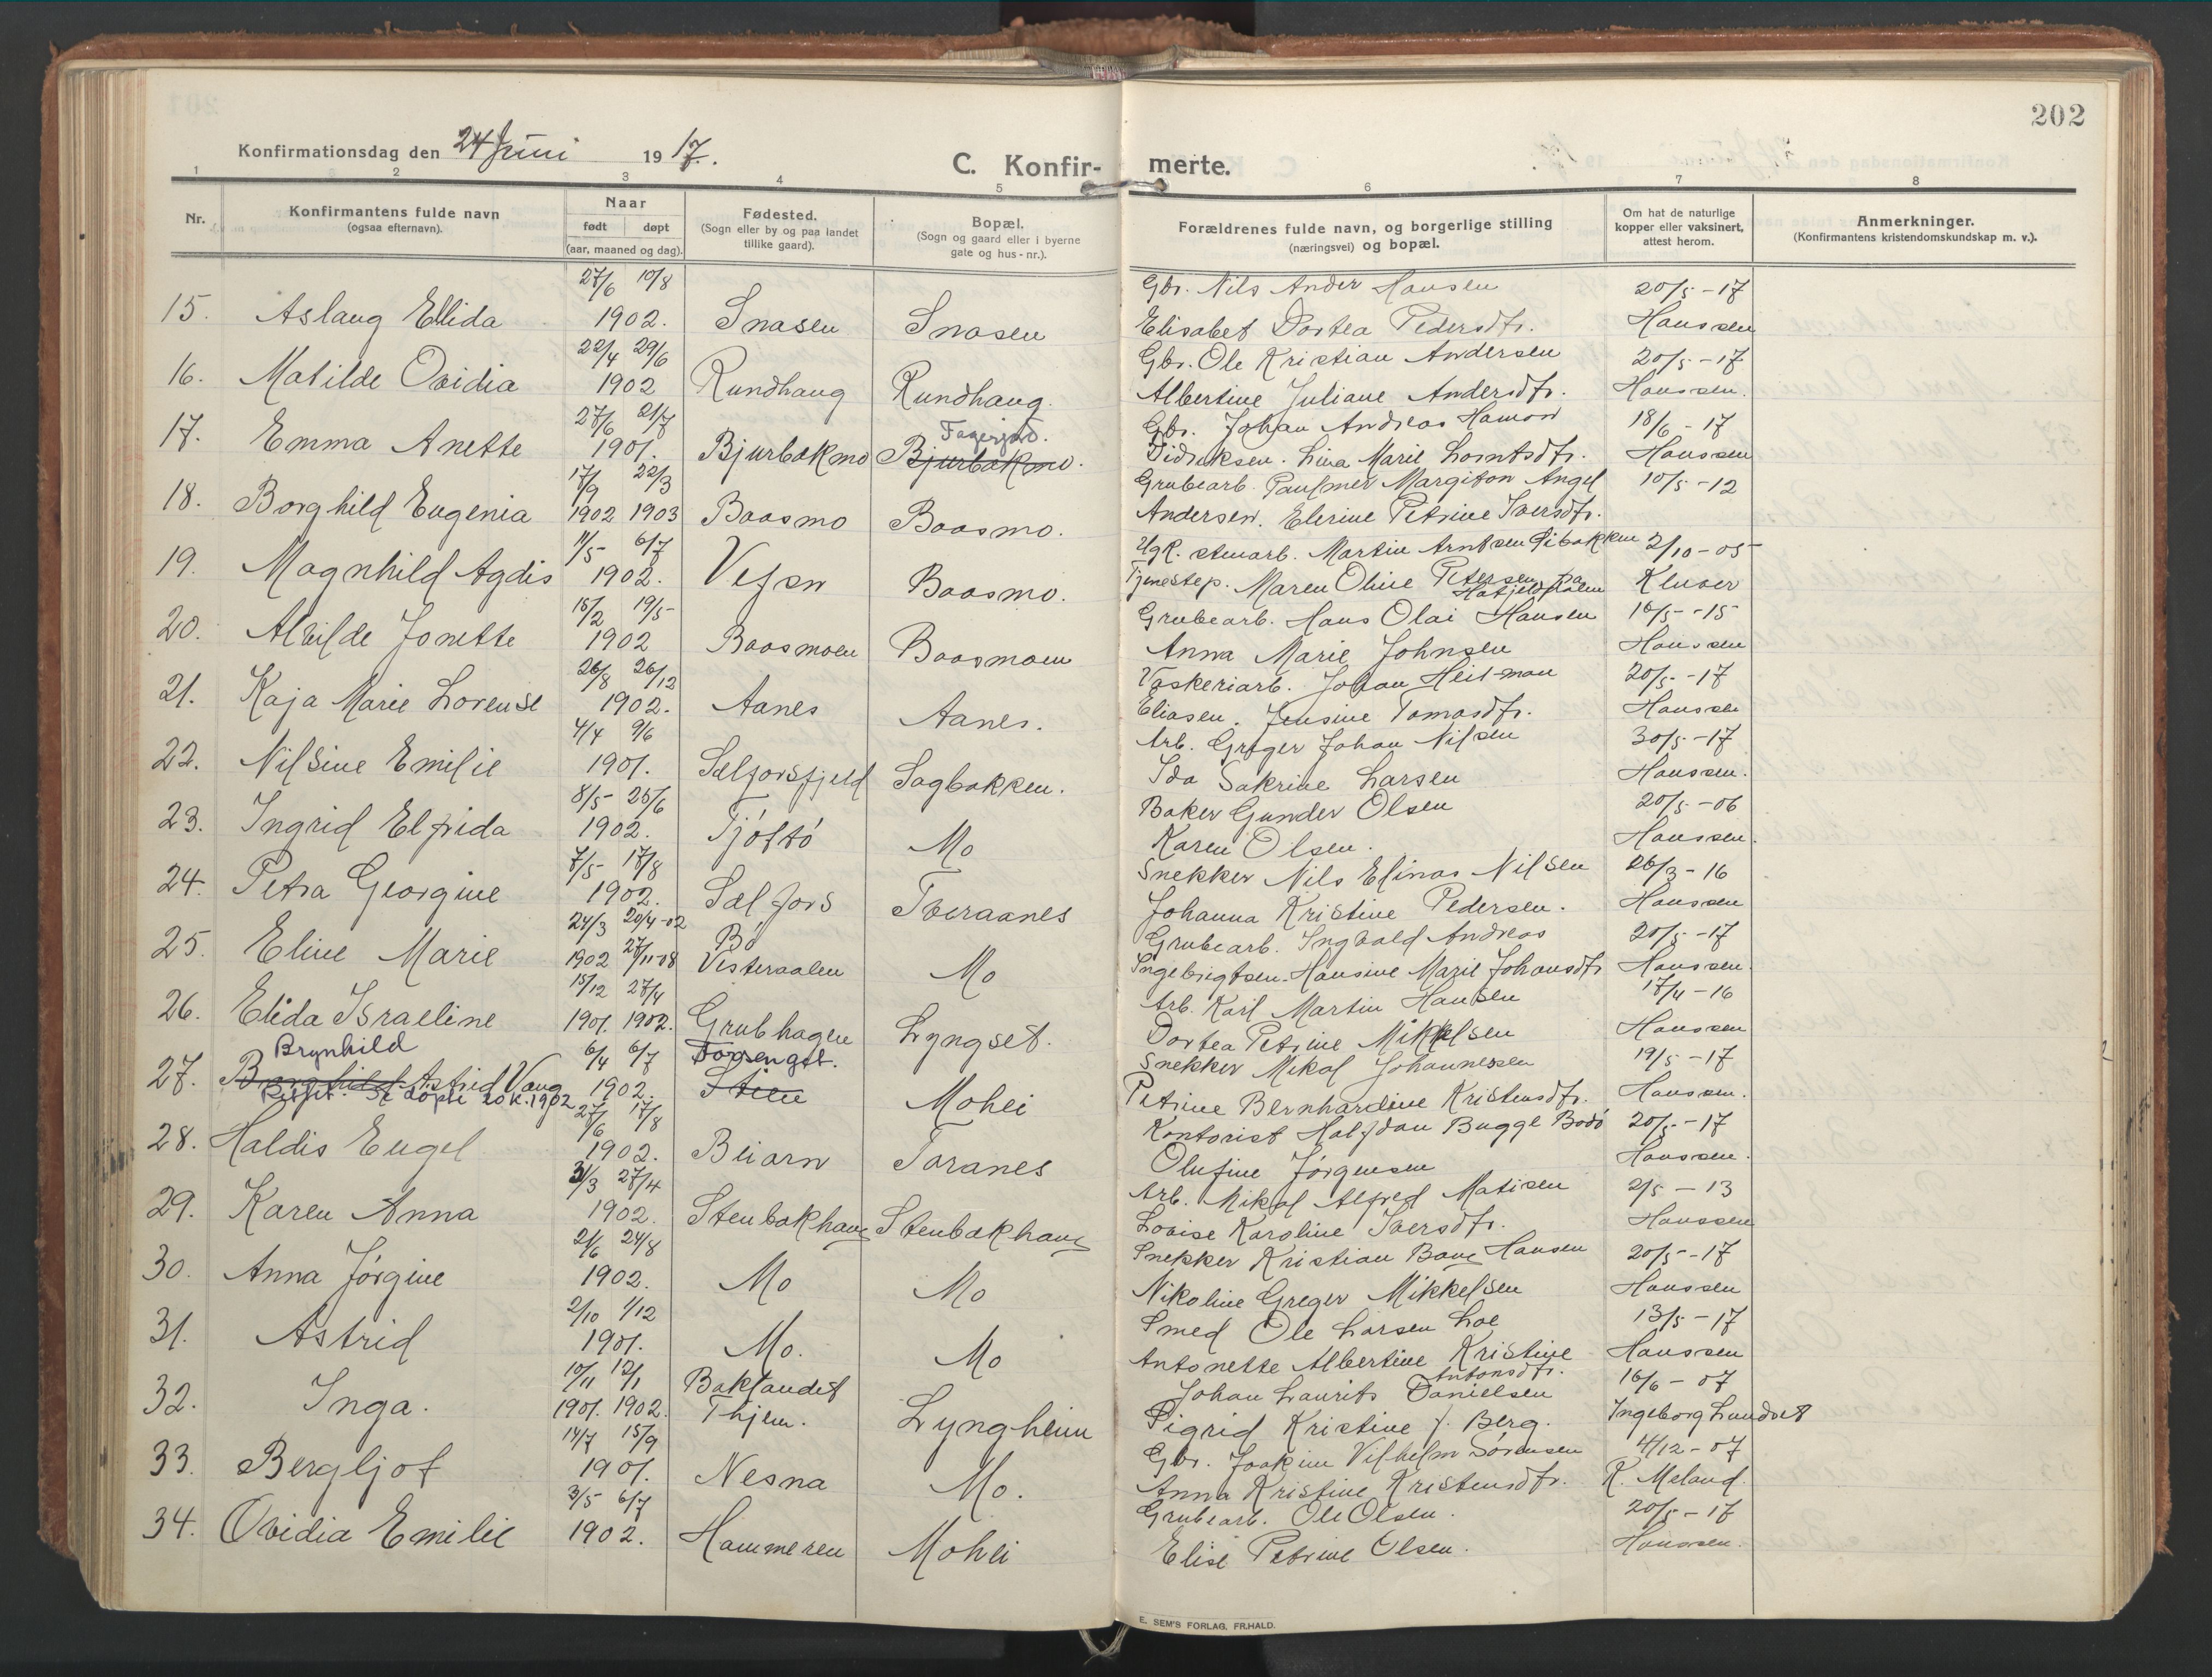 202
Konfirmationsdag den 24 Juni 1917.
C. Konfir- merte.
1 2 3 4 5 6 7 8
Nr.
Konfirmantens fulde navn
(ogsaa efternavn).
Naar
født døpt
(aar, maaned og dag).
Fødested.
(Sogn eller by og paa landet
tillike gaard).
Bopæl.
(Sogn og gaard eller i byerne
gate og hus-nr.).
Forældrenes fulde navn, og borgerlige stilling
(næringsvei) og bopæl.
Om hat de naturlige
kopper eller vaksinert,
attest herom.
Anmerkninger.
(Konfirmantens kristendomskundskap m. v.).
27/6 10/8 Gbr. Nils Ander Hansen 20/5-17
15. Aslaug Ellida 1902. Snasen Snasen Elisabet Dortea Pedersdtr. Hanssen
22/4 29/6 Gbr. Ole Kristian Andersen 20/5-17
16. Matilde Ovidia 1902 Rundhaug Rundhaug. Albertine Juliane Andersdtr. Hanssen.
27/6 21/7 Gbr. Johan Andreas Hamon 18/6-17
17. Emma Anette 1901. Bjurbækmo Bjurbækmo. Didriksen. Lina Marie Lorntsdtr. Hanssen
17/9 22/3 Grubearb. Paulmer Margiton Angel 10/5-12
18. Borghild Eugenia 1902 1903 Baasmo Baasmo. Andersen. Elerine Petrine Iversdtr.
11/5 6/7 Ugk. stenarb. Martin Arntsen Libakken 2/10-05
19. Magnhild Agdis 1902. Vefsn Baasmo. Tjenestep. Maren Oline Petersen Kluver
15/2 19/5 Grubearb. Hans Olai Hansen 10/5-15
20. Alvilde Jonette 1902 Baasmoen Baasmoen Anna Marie Johnsen Hanssen
26/8 26/12 Vaskeriarb. Johan Heitman 20/5-17
21. Kaja Marie Lorense 1902. Aanes Aanes. Eliasen. Jensine Tomasdtr. Hanssen
4/4 9/6 Arb. Greger Johan Nilsen 30/5-17
22. Nilsine Emilie 1901. Selforsfjeld Sagbakken. Ida Sakrine Larsen Hanssen.
8/5 25/6 Baker Gunder Olsen 20/5-06
23. Ingrid Elfrida 1902. Tjøttø Mo Karen Olsen. Hanssen.
7/5 17/8 Snekker Nils Elinas Nilsen 26/3-16
24. Petra Georgine 1902. Selfors Tveraanes Johanna Kristine Pedersen. Hanssen
24/3 20/4-02 Bø Grubearb. Ingvald Andreas 20/5-17
25. Eline Marie 1902 27/11-08 Vesteraalen Mo Ingebrigtsen. Hansine Marie Johansdtr Hanssen.
15/12 27/4 Arb. Karl Martin Hansen 17/4-16
26. Elida Israeline 1901. 1902. Grubhagen Lyngset. Dortea Petrine Mikkelsen Hanssen
Brynhild 6/4 6/7 Forsenget. Snekker Mikal Johannessen 19/5-17
27. Borghild Astrid Vang 1902. Steen Mohei Petrine Bernhardine Kristensdtr. Hanssen.
Rettet. Se døpte 20 K. 1902
27/6 17/8 Kontorist Halfdan Bugge Bodø 20/5-17
28. Haldis Engel 1902. Beiarn Toranes Olufine Jørgensen Hanssen.
31/3 27/4 Arb. Mikal Alfred Matisen 2/5-13
29. Karen Anna 1902. Stenbækhaug Stenbækhaug Lovise Karoline Iversdtr. Hanssen
2/6 24/8 Snekker Kristian Bang Hansen 20/5-17
30. Anna Jørgine 1902. Mo Mo Nikoline Greger Mikkelsen Hanssen
2/10 1/12 Smed Ole Larsen Loe 13/5-17
31. Astrid 1901. Mo. Mo Antonette Albertine Kristine Antonsdtr. Hanssen
10/11 12/1 Baklandet Johan Laurits Danielsen 16/6-07
32. Inga. 1901. 1902. Thjem. Lyngheim Sigrid Kristine f. Berg. Ingeborg Lundset
14/7 15/9 Gbr. Joakim Vilhelm Sørensen 4/12-07
33. Bergljot 1901. Nesna Mo. Anna Kristine Kristensdtr. K. Meland.
3/5 6/7 Grubearb. Ole Olsen. 20/5-17
34. Ovidia Emilie 1902. Hammeren Mohei Elise Petrine Olsen. Hanssen.
E. SEM'S FORLAG, FR.HALD.